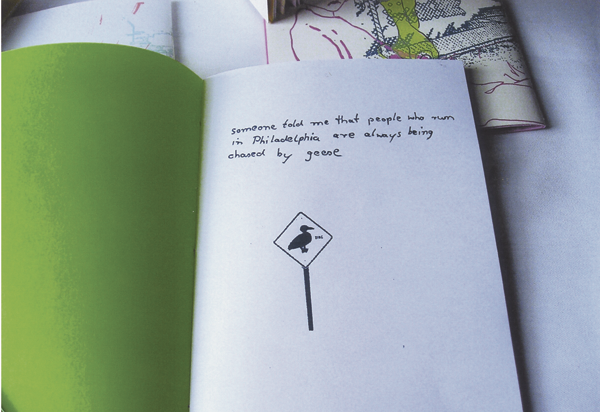 someone told me that people who run
in Philadelphia are always being
chased by geese